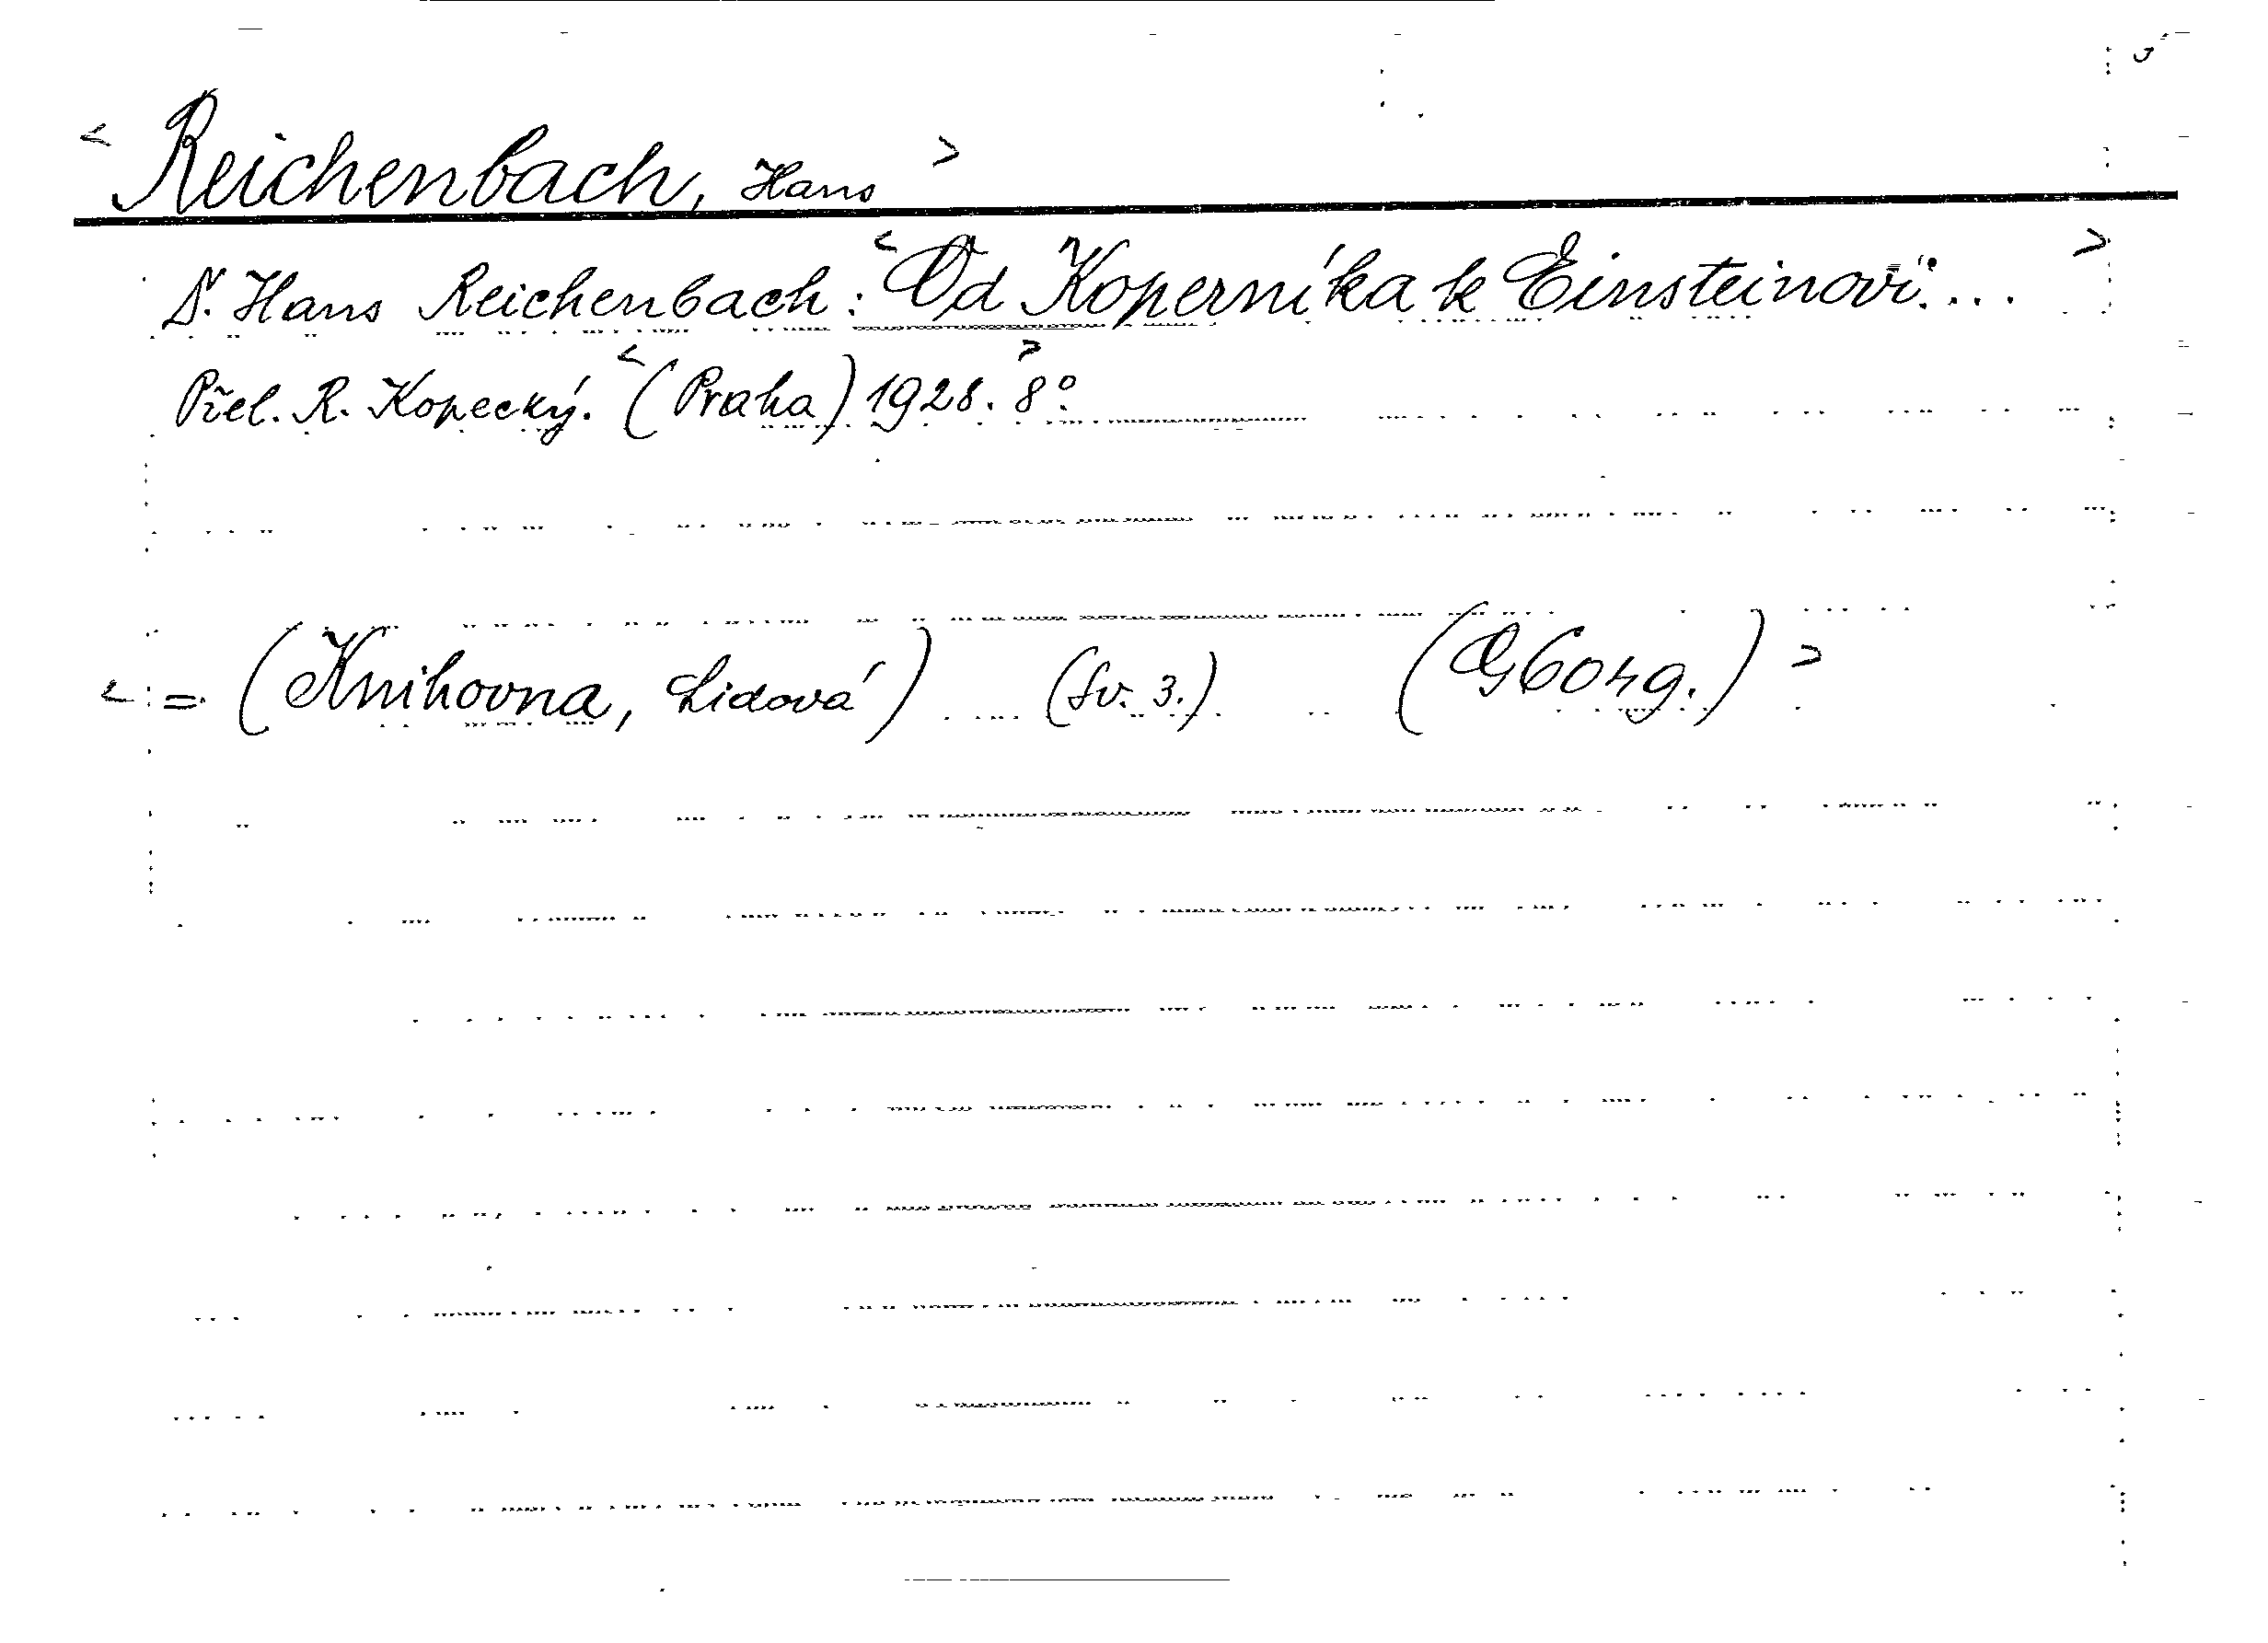 < Reichenbach, Hans >
D. Hans Reichenbach: < Od Koperníka k Einsteinovi... >
Přel. R. Kopecký. < (Praha) 1928. > 8°.
< = (Knihovna, Lidová) (Sv. 3.) (G 6049.) >